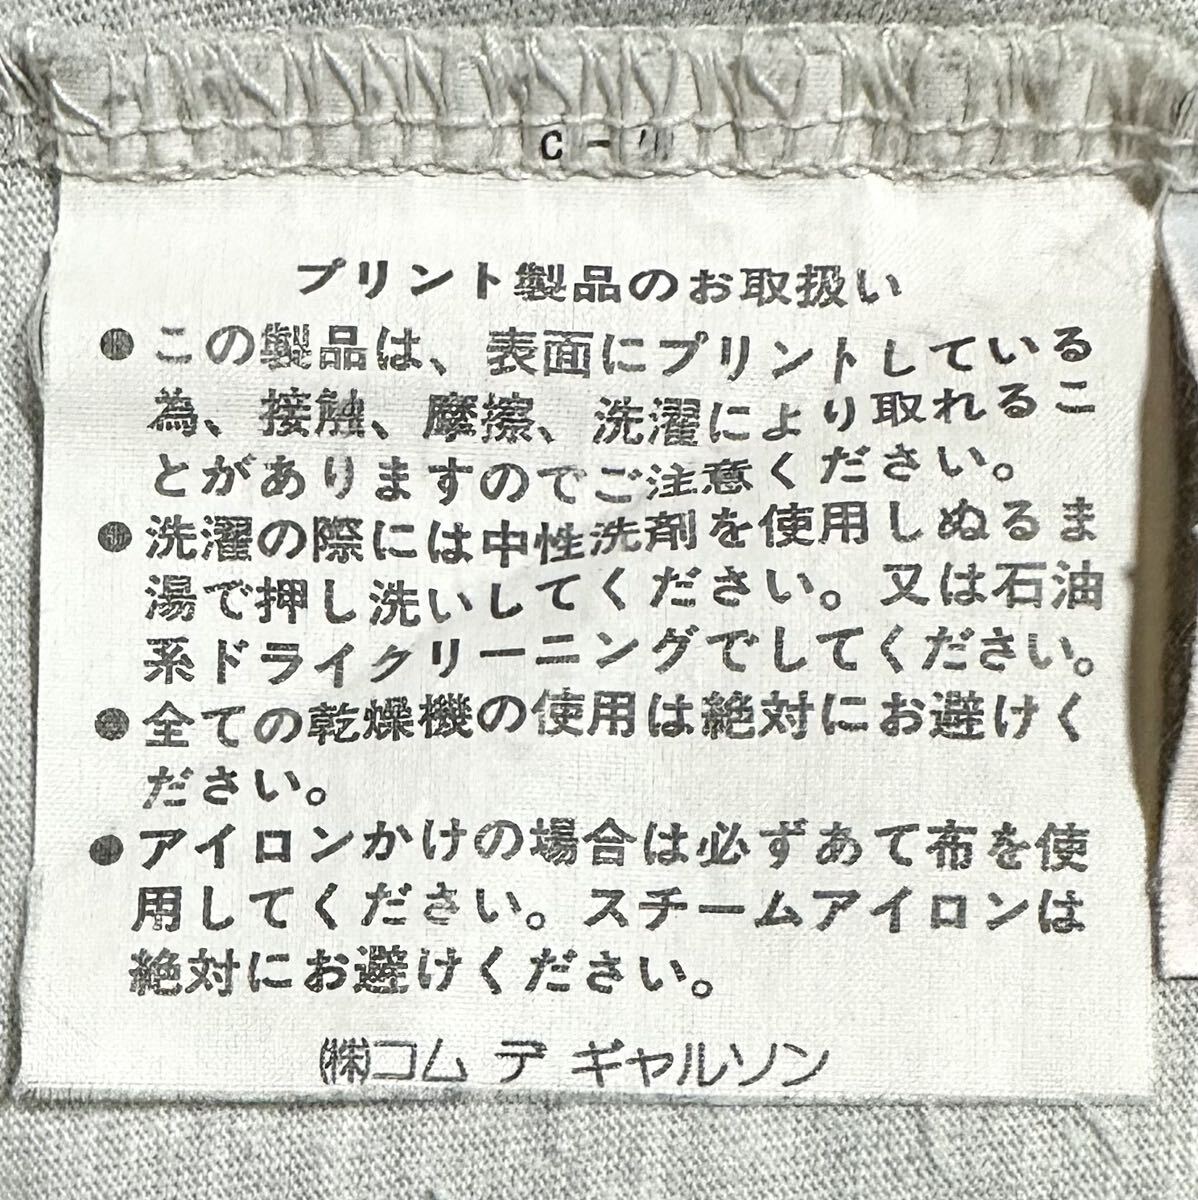 プリント製品のお取扱い
●この製品は、表面にプリントしている
為、接触、摩擦、洗濯により取れるこ
とがありますのでご注意ください。
●洗濯の際には中性洗剤を使用しぬるま
湯で押し洗いしてください。又は石油
系ドライクリーニングでしてください。
●全ての乾燥機の使用は絶対にお避けく
ださい。
●アイロンかけの場合は必ずあて布を使
用してください。スチームアイロンは
絶対にお避けください。
㈱コム デ ギャルソン